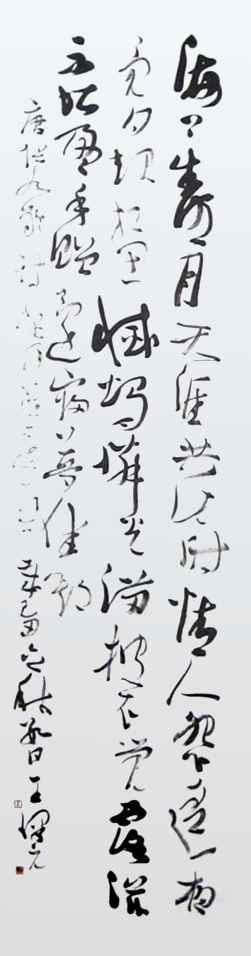 海上生明月天涯共此时情人怨遥夜
竟夕起相思灭烛怜光满披衣觉露滋
不堪盈手赠还寝梦佳期
唐张九龄诗望月怀远一首